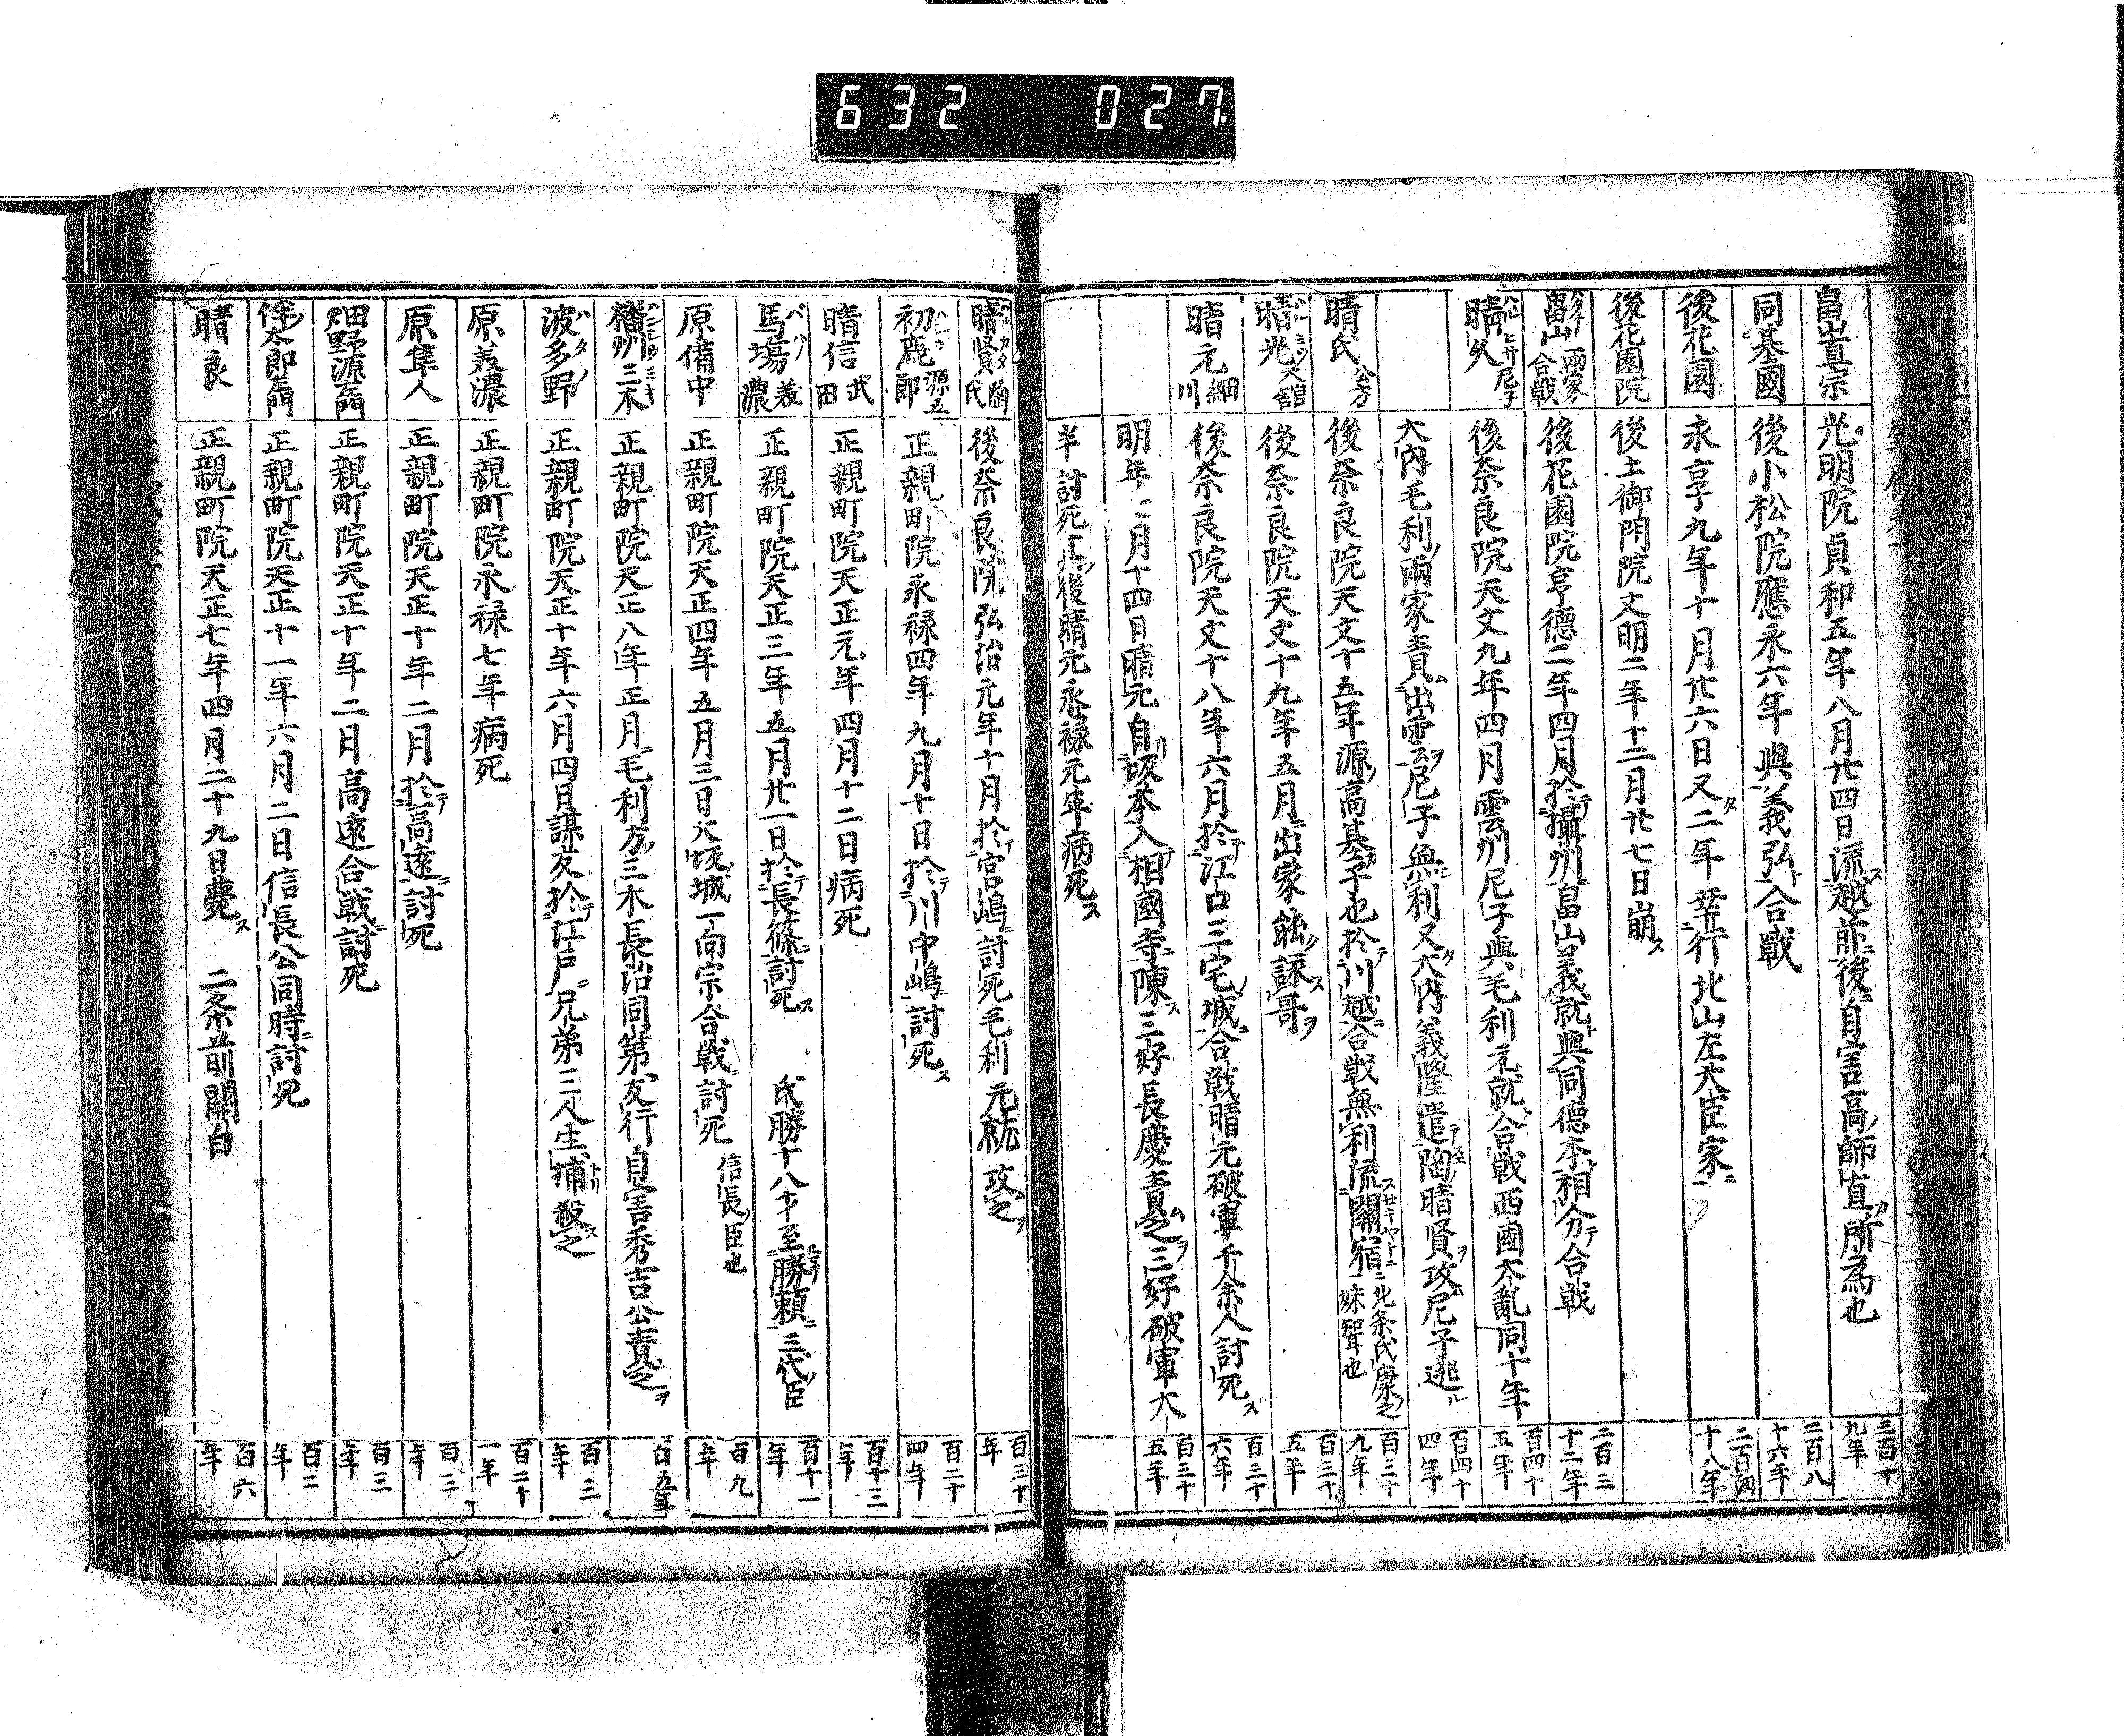 632 027
畠山直宗 光明院貞和五年八月廿四日流越前後自害高師直所為也 三百十九年
同基國 後小松院應永六年與義弘合戰 二百八十六年
後花園 永享九年十月廿六日又二年幸行北山左大臣家 二百四十八年
後花園院 後土御門院文明二年十二月廿七日崩ス
畠山 兩家合戰 後花園院亨德二年四月於攝州畠山義就與同德本相分テ合戰 二百三十二年
晴久 尼子 後奈良院天文九年四月雲州尼子與毛利元就合戰西國大亂同十年 百四十五年
大內毛利兩家責出雲尼子無利又大內義隆遣陶晴賢攻尼子逃ル 百四十四年
晴氏 公方 後奈良院天文十五年源高基子也於川越合戰無利流關宿 北条氏康之妹聟也 百三十九年
晴光 大舘 後奈良院天文十九年五月出家能詠哥 百三十五年
晴元 細川 後奈良院天文十八年六月於江口三宅城合戰晴元破軍千余人討死ス 百三十六年
明年二月十四日晴元自坂本入相國寺陳ス三好長慶責之三好破軍大 百三十五年
半討死其後晴元永禄元年病死ス
晴賢 陶氏 後奈良院弘治元年十月於宮嶋討死毛利元就攻之 百三十年
初鹿 源五郎 正親町院永禄四年九月十日於川中嶋討死ス 百二十四年
晴信 武田 正親町院天正元年四月十二日病死 百十三年
馬塲 美濃 正親町院天正三年五月廿一日於長篠討死ス 氏勝十八才至勝頼三代臣 百十一年
原備中 正親町院天正四年五月三日大坂城一向宗合戰討死 信長臣也 百九年
播州三木 正親町院天正八年正月毛利方三木長治同第友行自害秀吉公責之 百五年
波多野 正親町院天正十年六月四日謀反於江戸兄弟三人生捕殺之 百三年
原美濃 正親町院永禄七年病死 百二十一年
原隼人 正親町院天正十年二月於高遠討死 百三年
畑野源左衛門 正親町院天正十年二月高遠合戰討死 百三年
伴太郎左衛門 正親町院天正十一年六月二日信長公同時討死 百二年
晴良 正親町院天正七年四月二十九日薨ス 二条前關白 百六年